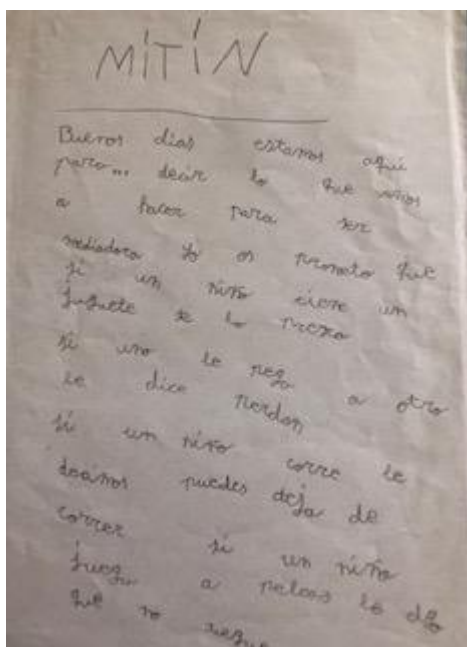 MITIN
Buenos dias estamos aqui
para... decir lo que vamos
a hacer para ser
mediadora yo os prometo que
si un niño tiene un
juguete se lo
si uno le pega a otro
le dice perdon
si un niño corre le
decimos puedes deja de
correr si un niño
juega a peleas le digo
que no